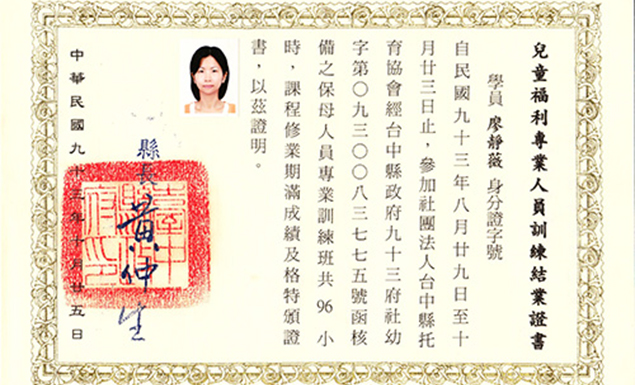 兒童福利專業人員訓練結業證書
學員 廖靜薇 身分證字號
自民國九十三年八月廿九日至十
月廿三日止，參加社團法人台中縣托
育協會經台中縣政府九十三府社幼
字第〇九三〇〇八三七七五號函核
備之保母人員專業訓練班共 96 小
時，課程修業期滿成績及格特頒證
書，以茲證明。
縣長 黃仲生
中華民國九十三年十月廿五日